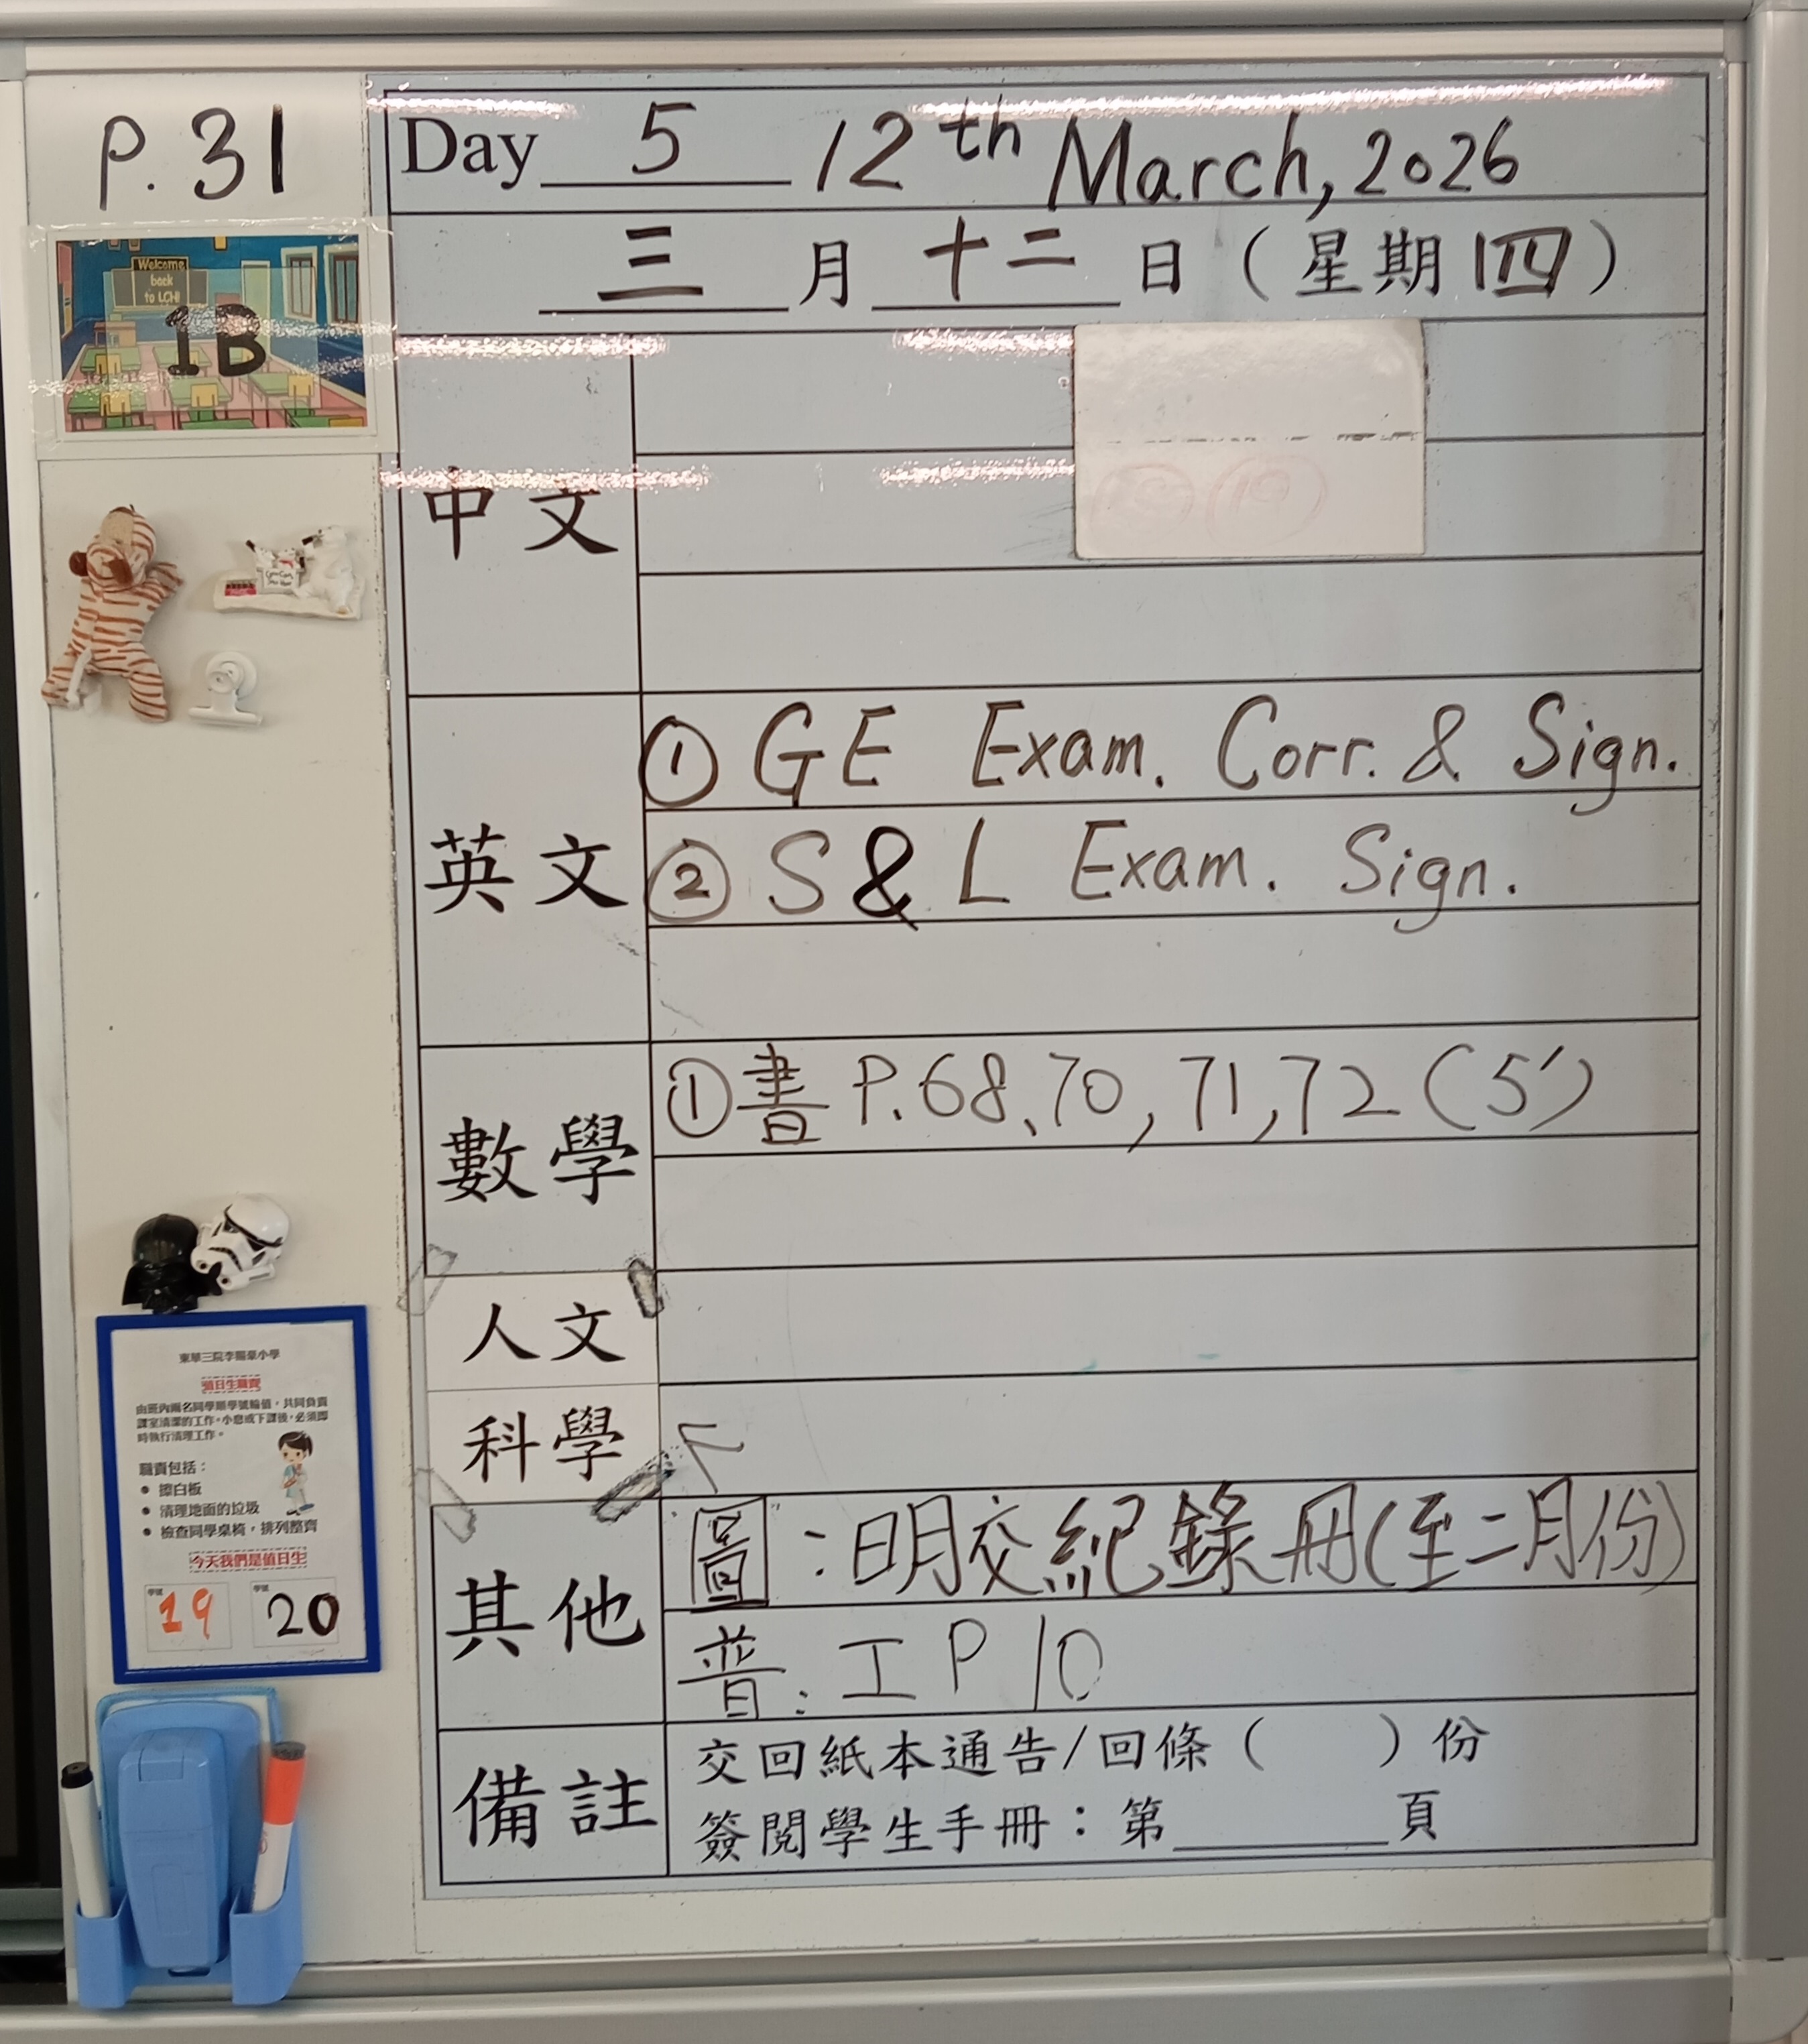 P. 31
Day 5 12th March, 2026
三 月 十二 日 ( 星期 四 )
Welcome
back
to LCH!
1B
中文
英文
① GE Exam. Corr. & Sign.
② S & L Exam. Sign.
數學
① 書 P.68、70, 71, 72 (5')
人文
科學
其他
圖 : 明交紀錄冊(至二月份)
普: 工 P 10
備註
交回紙本通告/回條 ( ) 份
簽閱學生手冊：第 頁
東華三院李賜豪小學
值日生職責
由班內兩名同學順學號輪值，共同負責
課室清潔的工作。小息或下課後，必須即
時執行清理工作。
職責包括：
• 擦白板
• 清理地面的垃圾
• 檢查同學桌椅，排列整齊
今天我們是值日生
學號 19 學號 20